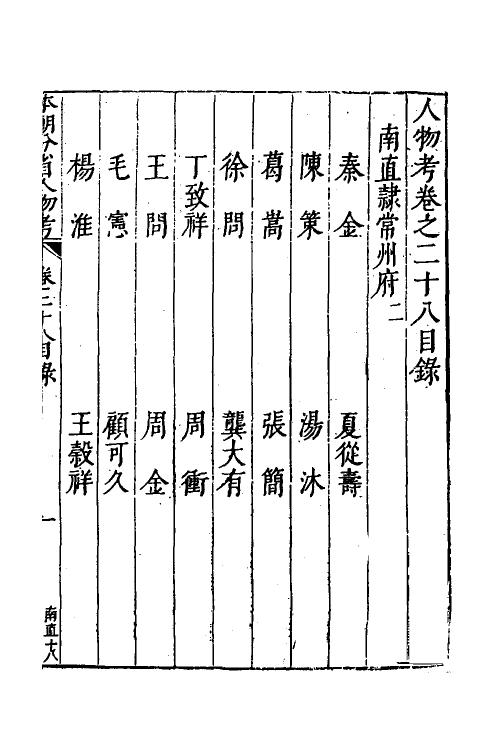 人物考卷之二十八目錄
南直隸常州府二
秦金 夏從壽
陳策 湯沐
葛嵩 張簡
徐問 龔大有
丁致祥 周衝
王問 周金
毛憲 顧可久
楊淮 王榖祥
本朝分省人物考 卷二十八目錄 一 南直十八